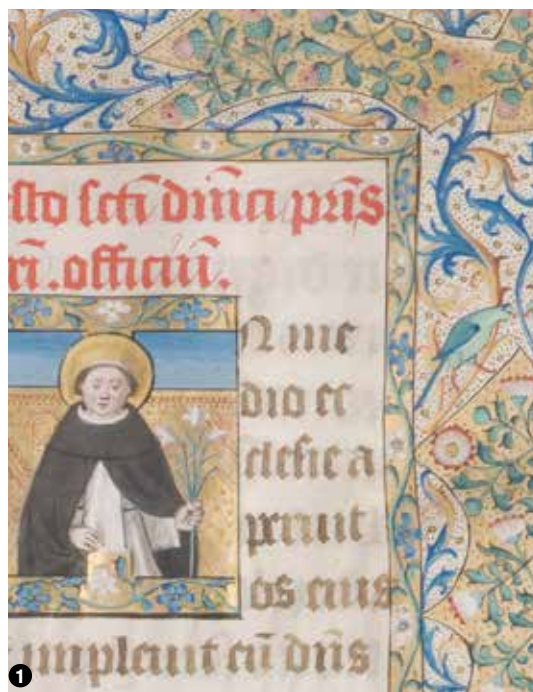 sto sctī dn̄ici pr̄is
rī. officiū.
N me
dio ec
clesie a
peruit
os eius
impleuit eū dn̄s
1